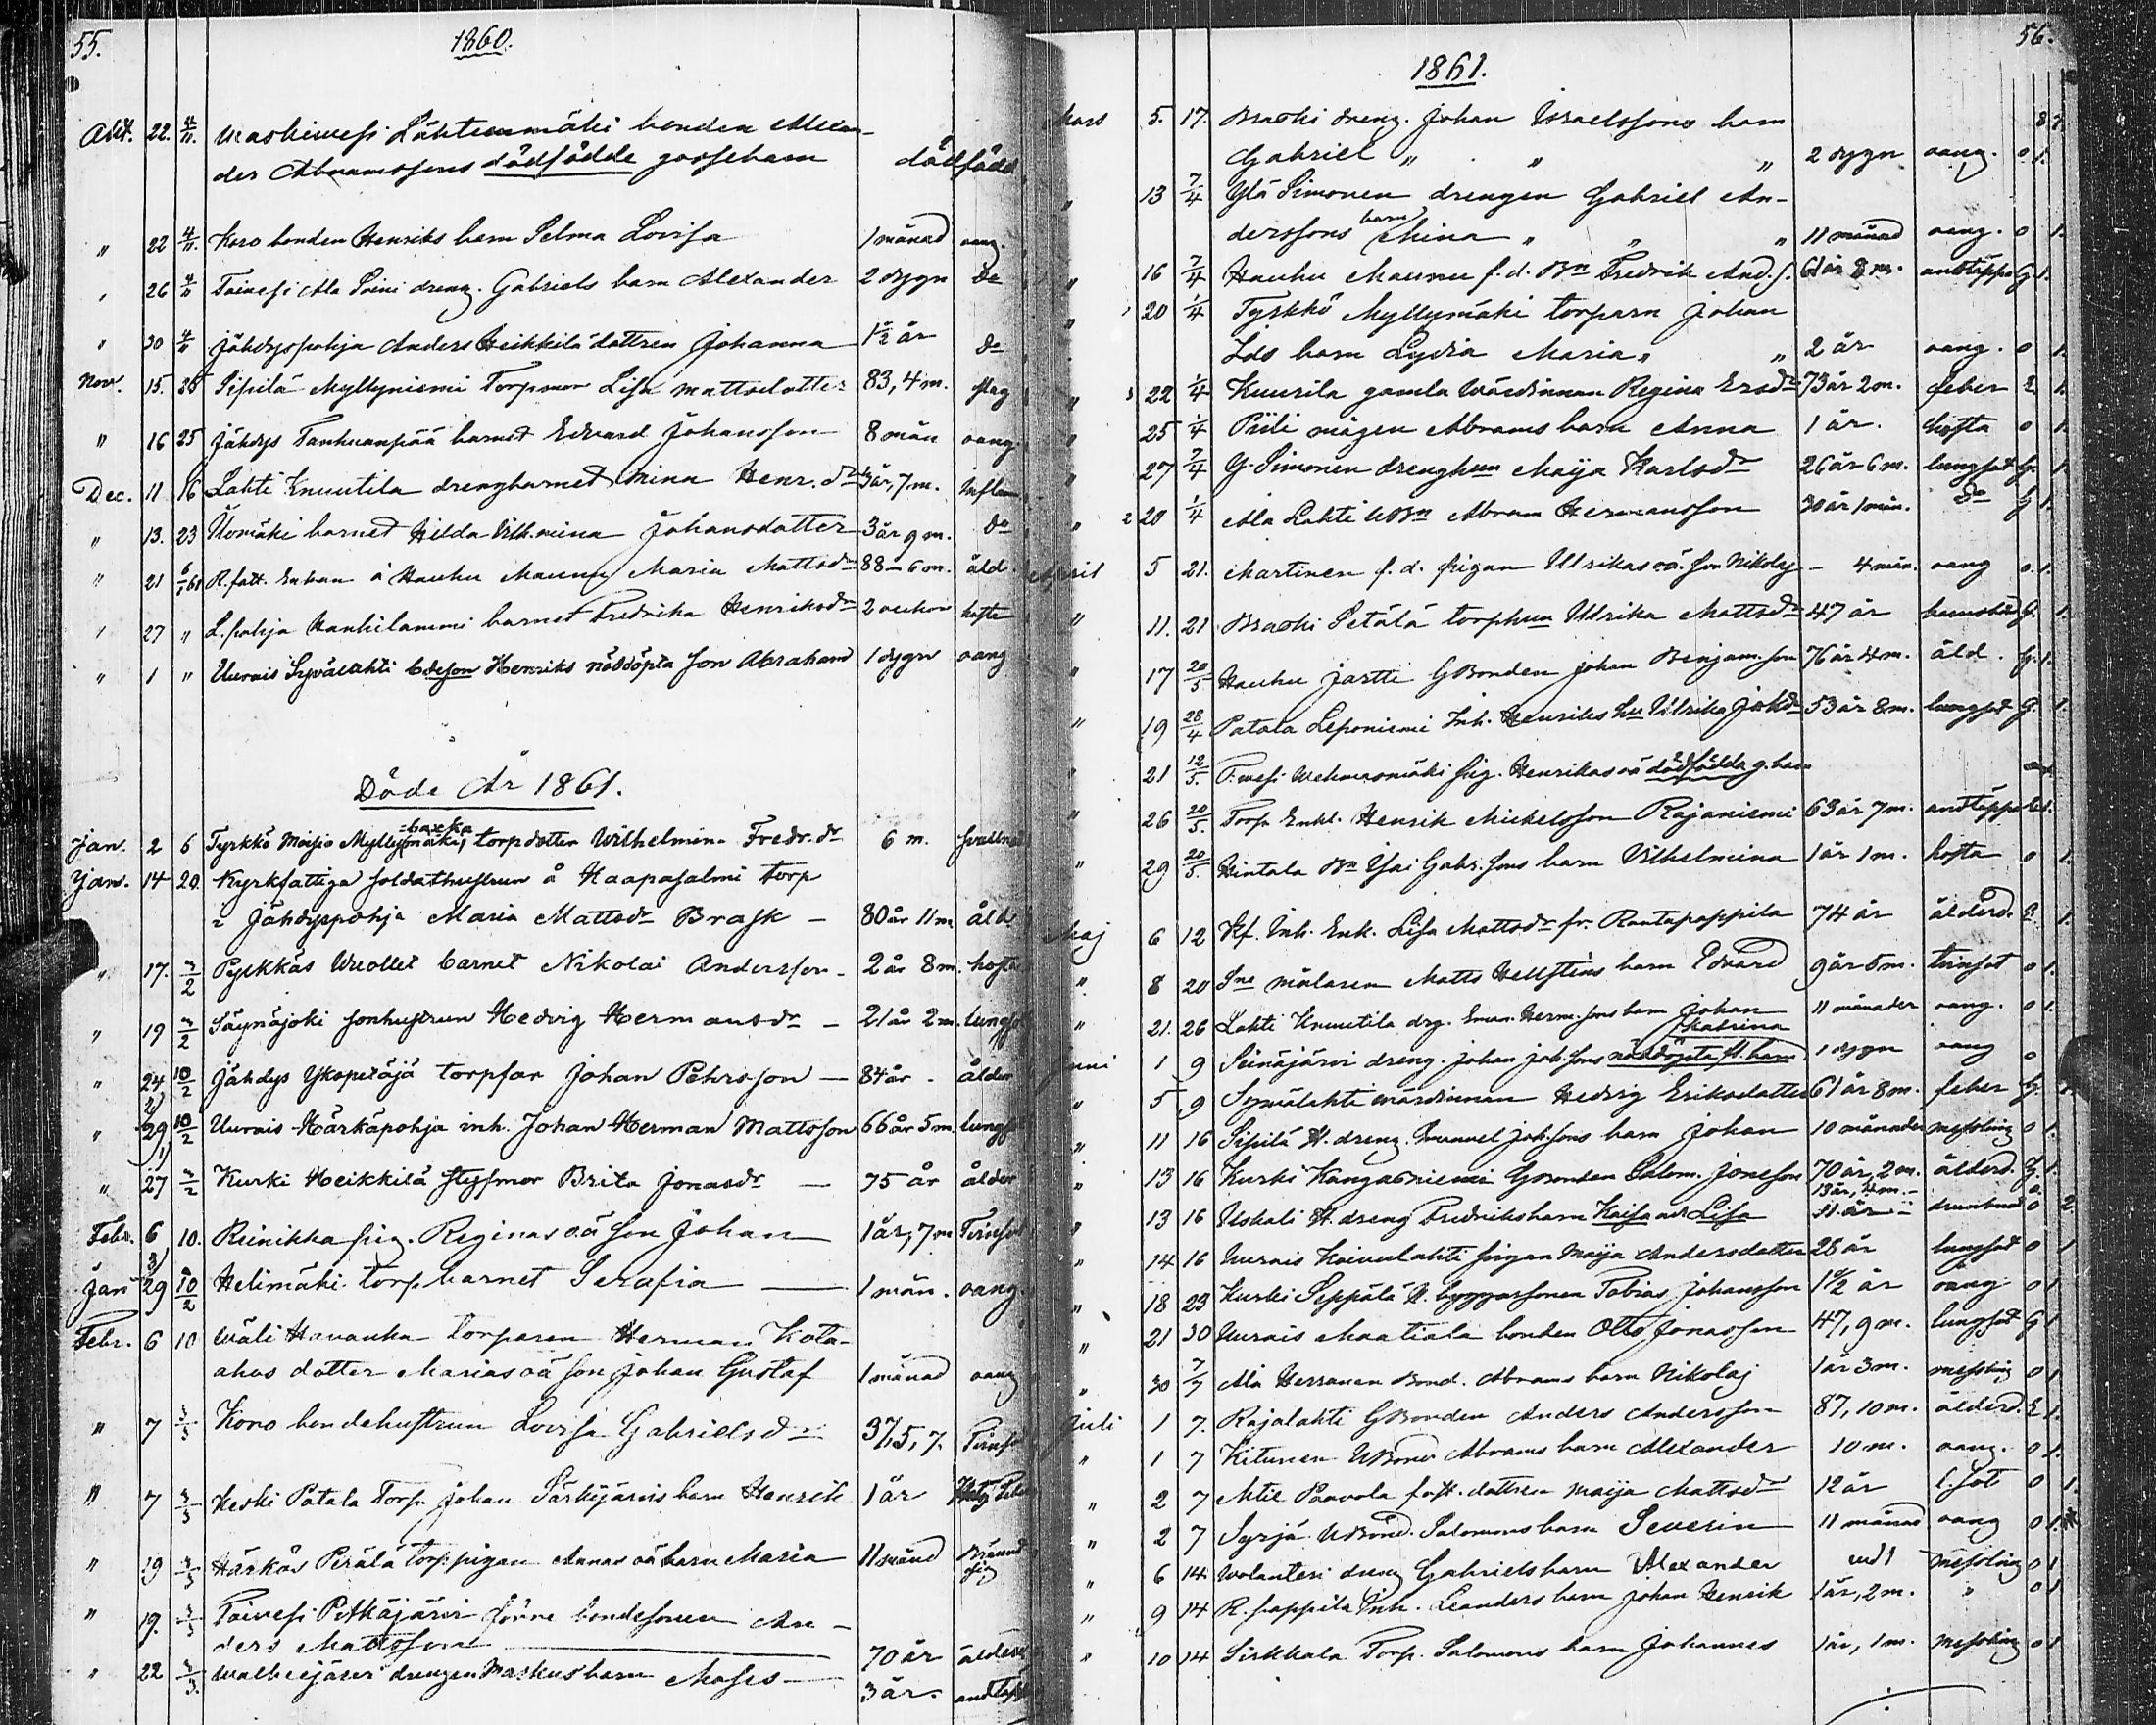 55.
1860.
Okt. 22. 4/11. Maskuwesi Lähteenmäki bonden Alexan-
der Abramssons dödfödde gossebarn dödfödd
" 22 4/11. Koro bonden Henriks barn Selma Lovisa 1 månad oang.
" 26 4/11 Toivesi Ala Soini dreng. Gabriels barn Alexander 2 dygn Do
" 30 4/11 Jähdyspohja Anders Heikkilä dottren Johanna 1 1/2 år Do
Nov. 15. 25 Sipilä Myllyniemi Torpmor Lisa Mattsdotter 83, 4 m. slag
" 16 25 Jähdys Tanhuanpää barnet Edvard Johansson 8 mån oang
Dec. 11 16 Lahti Knuutila drengbarnet Mina Henr. dr 3 år, 7 m. Inflam
" 13. 23 Ülomäki barnet Hilda Vilhelmina Johansdotter 3 år 9 m. Do
" 21 6/1 61 R.fatt. Enkan å Hauhu Maunu Maria Mattsdr 88 – 6 m. åld.
" 27 " L.pohja Hankilammi barnet Fredrika Henriksdr 2 veckor hosta
" 1 " Uurais Syvälahti bdeson Henriks nöddöpta son Abraham 1 dygn oang
Döde År 1861.
Jan. 2 6 Tyrkkö Moisio Myllymäki, backa torpdotter Wilhelmin. Fredr. dr 6 m.
Jan. 14 20. Kyrkfattiga soldathustrun å Haapasalmi torp
i Jähdyspohja Maria Mattsdr Brask – 80 år 11 m. åld.
" 17. 3/2 Pyrkkäs Wuollet barnet Nikolai Andersson – 2 år 8 m. hosta
" 19 3/2 Säynäjoki sonhustrun Hedvig Hermansdr – 21 år 2 m. lungsot
" 24 10/2 Jähdys Ykspetäjä torpfar Johan Pehrsson – 84 år – ålder
" 2) 29 10/2 Uurais Härkäpohja inh. Johan Herman Mattsson 66 år 5 m. lungsot
" 1) 27 3/2 Kurki Heikkilä styfmor Brita Jonasdr – 75 år ålder
Febr. 6 10. Reinikka pig. Reginas oä son Johan 1 år, 7 m Tvinsot
Jan 3) 29 10/2 Helimäki torpbarnet Serafia – 1 mån. oang.
Febr. 6 10 Wäli Havanka torparen Herman Kota-
ahos dotter Marias oä son Johan Gustaf 1 månad oang
" 7 3/3 Koro bondehustrun Lovisa Gabrielsdr 37, 5, 7. Tvinsot
" 7 3/3 Keski Patala Torp. Johan Särkijärvis barn Henrik 1 år
" 19 3/3 Härkös Perälä Torp. pigan Annas oä barn Maria 11 månd
" 19. 3/3 Toivesi Pitkäjärvi förre bondesonen An-
ders Mattsson 70 år ålder
" 22 3/3. Walkeejärvi drengen Markus barn Moses – 3 år. andtäpp
56.
1861.
Mars 5. 17. Braski dreng. Johan Israelssons barn
Gabriel " " " 2 dygn oang. o 1.
" 13 7/4 Ylä Simonen drengen Gabriel An-
derssons barn Mina " " " 11 månad oang. o 1.
" 16 7/4 Hauhu Maunu f.d. Bn Fredrik And. s. 61 år 8 m. andtäppa G 1.
" 20 1/4 Tyrkkö Myllymäki torparn Johan
Jds barn Lydia Maria " " 2 år oang. o 1.
" 22 1/4 Knuutila gamla wärdinnan Regina Ersdr 73 år 2 m. feber E 1.
" 25 1/4 Piili mågen Abrams barn Anna 1 år. hosta o 1.
" 27 7/4 Y. Simonen drenghun Maija Karlsdr 26 år 6 m. lungsot G. 1.
" 20 1/4 Ala Lahti UBn Abram Hermansson 30 år 1 mån. Do G 1.
April 5 21. Martinen f.d. pigan Ulrikas oä son Nikolaj – 4 mån. oang o. 1.
" 11. 21 Braski Setälä torphun Ulrika Mattsdr 47 år barnsbörd G. 1.
" 17 20/5 Hauhu Jartti GBonden Johan Benjam. son 76 år 4 m. åld. G. 1.
" 19 28/4 Patala Leponiemi Inh. Henriks hu Ulrika Johdr 53 år 8 m. lungsot G. 1.
" 21 12/5. T.wesi Wehmasmäki pig. Henrikas oä dödfödda g. barn
" 26 20/5. Torp. Enkl. Henrik Mickelsson Rajaniemi 63 år 7 m. andtäppa E 1.
" 29 20/5. Hintala Bn Isai Gabr. sons barn Vilhelmina 1 år 1 m. hosta o 1.
Maj 6 12 Kf. Inh. Enk. Lisa Mattsdr fr. Rantapappila 74 år ålderd. E. 1.
" 8 20 Sne målaren Matts Hellstens barn Edvard 9 år 5 m. tvinsot o 1.
" 21. 26 Lahti Knuutila drg. Eman. Herm. sons barn Johan 11 månader oang. o 1.
Juni 1 9 Seinäjärvi dreng. Johan Joh. sons nöddöpta fl. barn Katrina 1 dygn oang o
" 5 9 Syvälahti wärdinnan Hedvig Eriksdotter 61 år 8 m. feber G. 1
" 11 16 Sipilä H. dreng. Emanuel Joh. sons barn Johan 10 månader messling o 1.
" 13 16 Kurki Kangasniemi Gbonden Salom. Jonsson 70 år, 2 m. ålderd. G 1.
" 13 16 Uskali H. dreng Fredriks barn Kaisa och Lisa 13 år, 4 m. – 11 år – drunknad o o 2.
" 14 16 Uurais Koivulahti pigan Maija Andersdotter 26 år lungsot o 1
" 18 23 Kurki Seppälä N. byggarsonen Tobias Johansson 1 1/2 år oang o 1
" 21 30 Uurais Maatiala bonden Otto Jonasson 47, 9 m. lungsot G 1
" 30 7/7 Ala Herranen Bond. Abrams barn Nikolaj 1 år 3 m. messling o 1
Juli 1 7. Rajalahti GBonden Anders Andersson 87, 10 m. ålderd. E 1.
" 1 7 Kitunen UBond Abrams barn Alexander 10 m. oang. o 1.
" 2 7 Mtie Paavola fatt. dottren Maija Mattsdr 12 år l. sot o 1.
" 2 7 Syrjä UBond. Salomons barn Severin 11 månad oang o 1.
" 6 14 Wolanteri dreng Gabriels barn Alexander messling o 1
" 9 14 R. pappila Inh. Leanders barn Johan Henrik 1 år, 2 m. " o 1
" 10 14 Sirkkala Torp. Salomons barn Johannes 1 år, 1 m. messling o 1